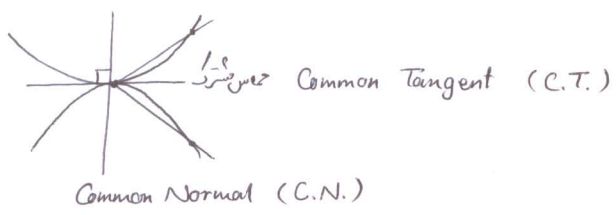 مماس مشترک Common Tangent (C.T.)
Common Normal (C.N.)